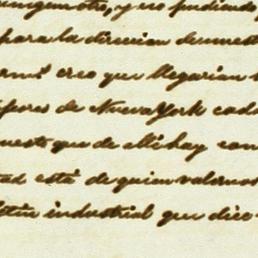 y no pudiendo
para la direccion de nuest
creo que llegarian
pores de Nueva York cada
uesto que de alli hay con
ad está de quien valernos
letin industrial que dice